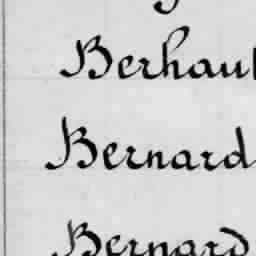 Berhaul
Bernard
Bernard